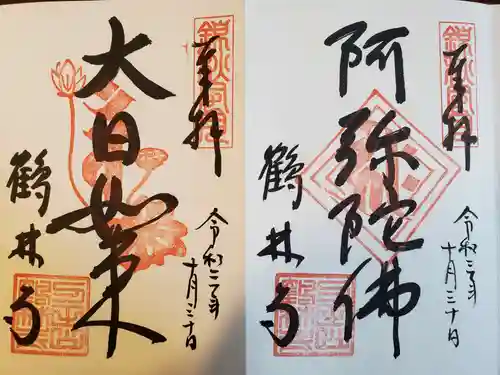 奉拝
阿弥陀佛
鶴林寺
令和二年
十月三十日
奉拝
大日如来
鶴林寺
令和二年
十月三十日